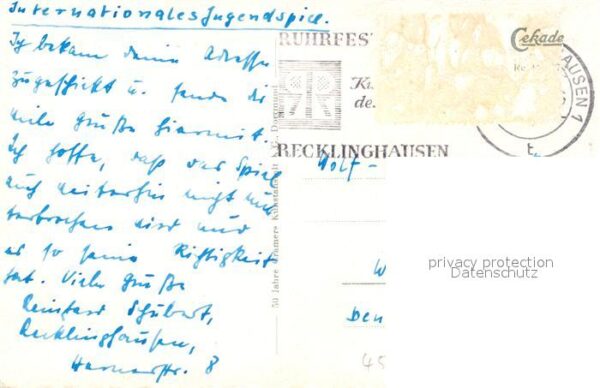 Internationales Jugendspiel.
Ich bekam deine Adresse
zugeschickt u. sende dir
viele Grüße hiermit.
Ich hoffe, daß das Spiel
auch weiterhin nicht un
terbrochen wird und
es so seine Richtigkeit
hat. Viele Grüße
Reinhard Schubert,
Recklinghausen,
Hernerstr. 8
50 Jahre Krämers Kunstanstalt Dortmund
RUHRFES
Ki
de
RECKLINGHAUSEN
Cekade
HAUSEN 1
Wolf -
W
Den
45
privacy protection
Datenschutz